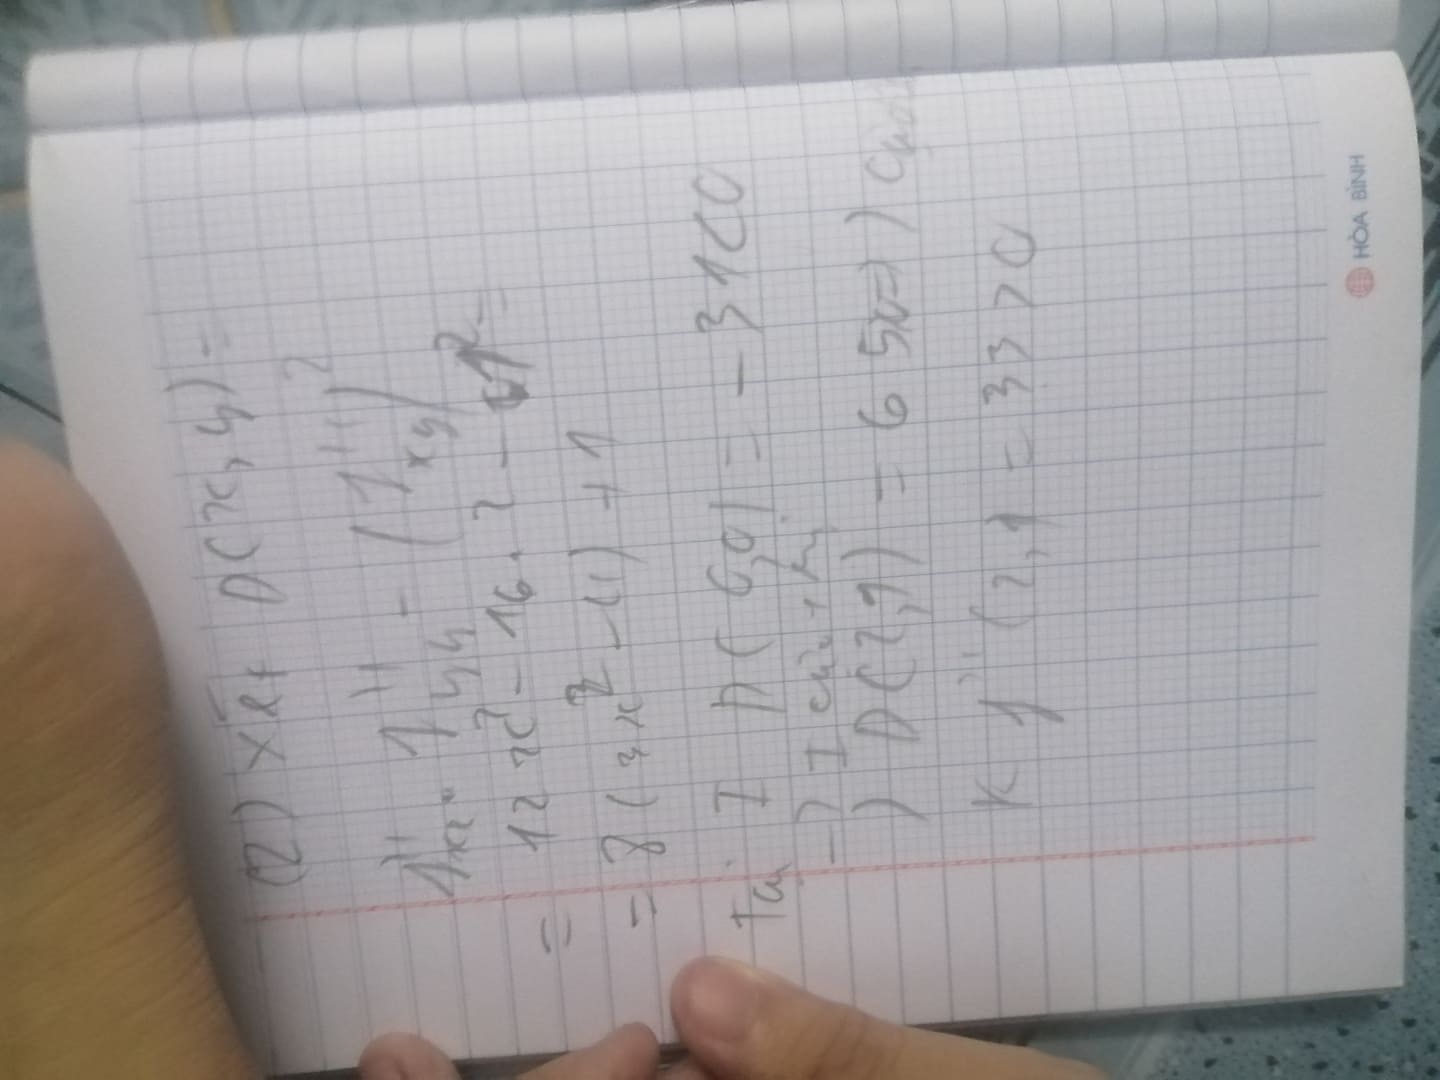 (2) Xét D(x,y) =
f''xx . f''yy - (f''xy)²
= 12x² - 16 . 2 - 1² =
= 8(3x² - 4) + 1
Tại I D(0,0) = - 31 < 0
-) I
) D(2,1) = 65 =) Cực
K f'' (2,1 = 33 > 0
HÒA BÌNH